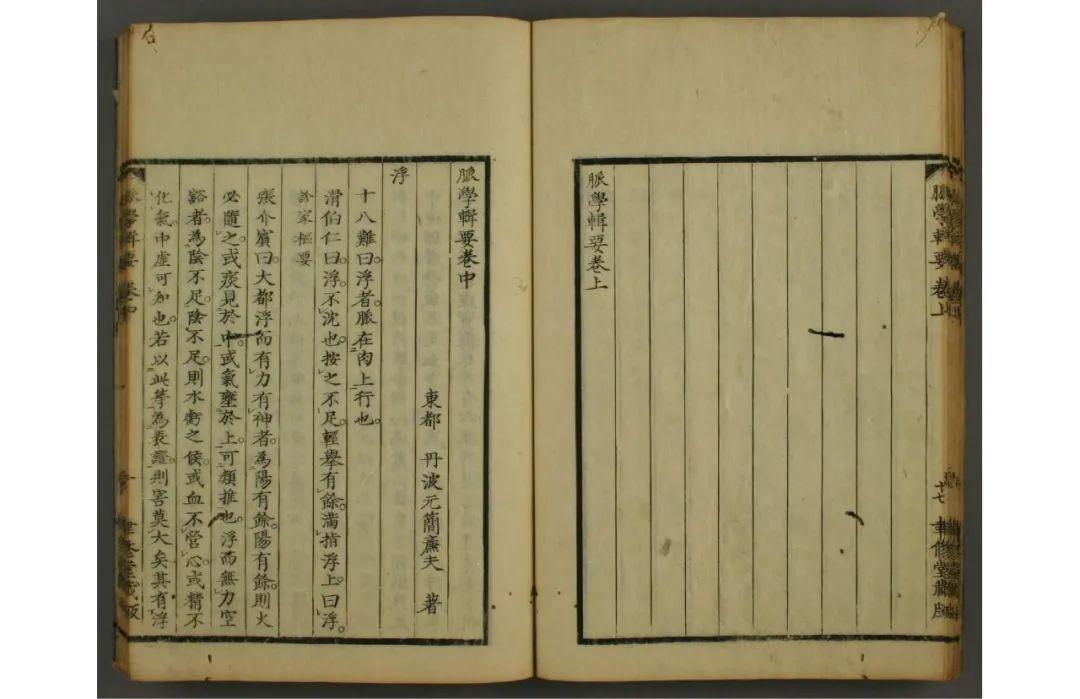 脈學輯要 卷上
十七 聿修堂藏版
脈學輯要卷上
脈學輯要卷中
東都 丹波元簡廉夫 著
浮
十八難曰浮者脈在肉上行也。
滑伯仁曰浮。不沈也。按之不足。輕舉有餘。滿指浮上。曰浮。
診家樞要
張介賓曰大都浮而有力有神者。為陽有餘。陽有餘。則火
必隨之。或痰見於中。或氣壅於上。可類推也。浮而無力空
豁者。為陰不足。陰不足。則水虧之候。或血不營心。或精不
化氣。中虛可知也。若以此等為表證。則害莫大矣。其有浮
脈學輯要 卷中
聿修堂藏版